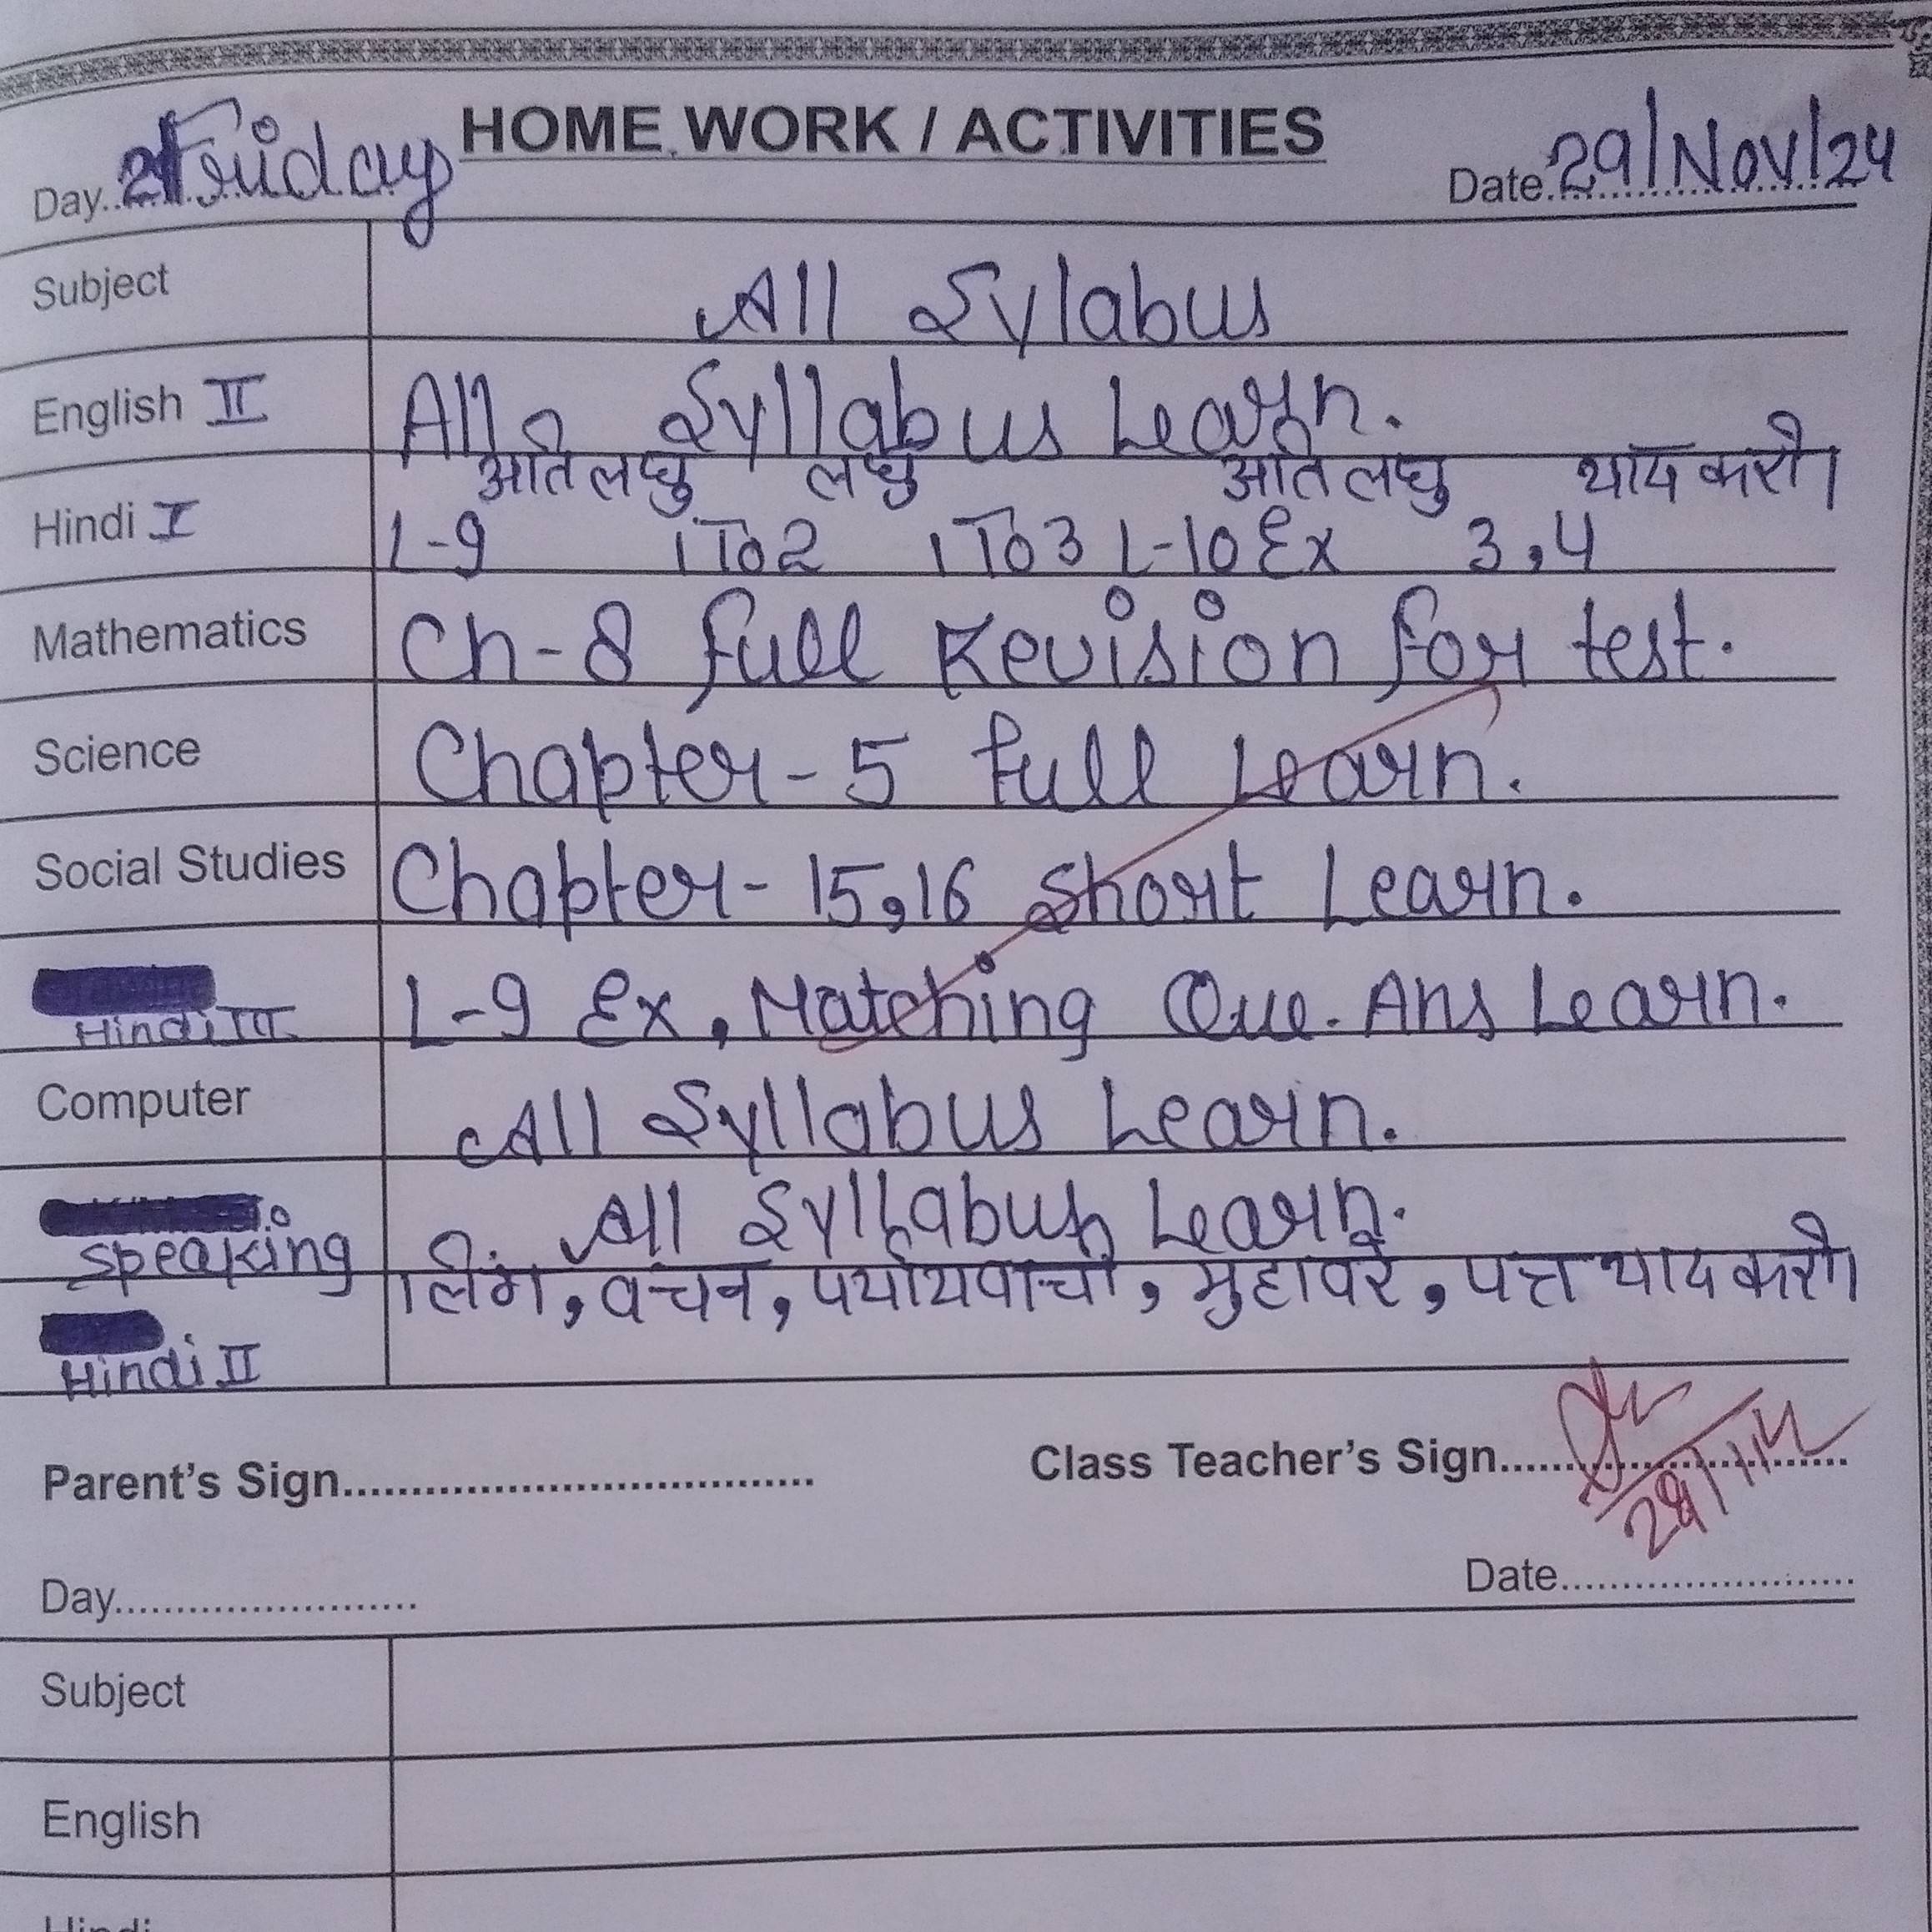 HOME WORK / ACTIVITIES
Day.. Friday Date. 29/Nov/24
Subject All Sylabus
English II All Syllabus Learn.
अति लघु लघु अति लघु याद करो।
Hindi I L-9 1 To 2 1 To 3 L-10 Ex 3,4
Mathematics Ch-8 full Revision for test.
Science Chapter-5 full Learn.
Social Studies Chapter-15,16 Short Learn.
Hindi III L-9 Ex, Matching Que. Ans Learn.
Computer All Syllabus Learn.
speaking All Syllabus Learn.
लिंग, वचन, पर्यायवाची, मुहावरे, पत्र याद करो।
Hindi II
Parent's Sign.................................. Class Teacher's Sign......
29/11/
Day........................ Date........................
Subject
English
Hindi